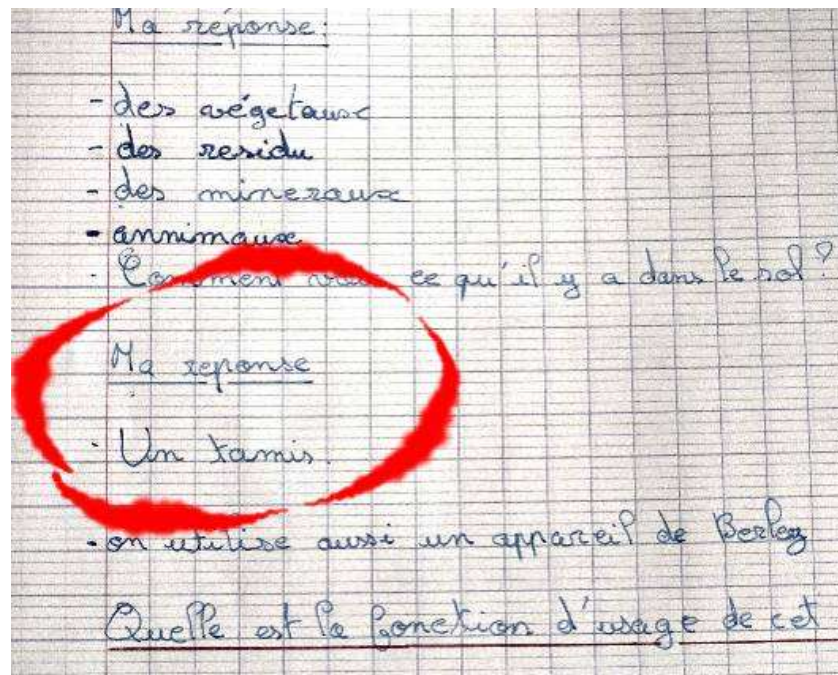 Ma réponse:
- des végetaux
- des residu
- des mineraux
- annimaux
- Comment voir ce qu'il y a dans le sol?
Ma reponse
- Un tamis.
- on utilise aussi un appareil de Berlez
Quelle est la fonction d'usage de cet